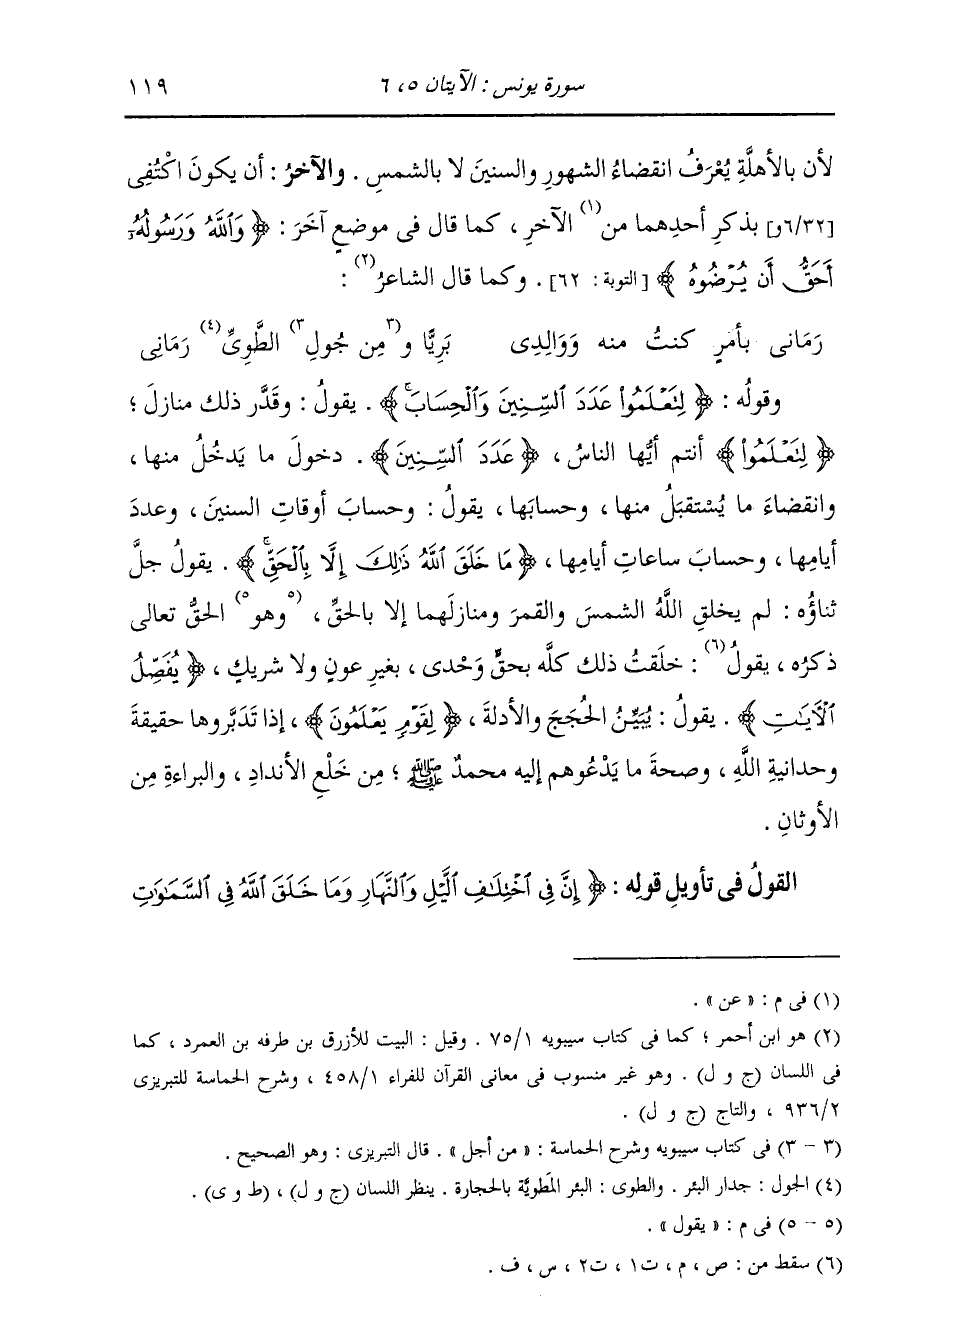 سورة يونس : الآيتان ٥ ، ٦ ١١٩
لأن بالأهلَّةِ يُعْرَفُ انقضاءُ الشهورِ والسنينَ لا بالشمسِ . والآخرُ : أن يكونَ اكْتُفِى
[٦/٣٢و] بذكرِ أحدِهما من(١) الآخرِ ، كما قال فى موضعٍ آخَرَ : ﴿ وَٱللَّهُ وَرَسُولُهُۥٓ
أَحَقُّ أَن يُرْضُوهُ ﴾ [ التوبة : ٦٢] . وكما قال الشاعرُ(٢) :
رَمَانى بأمْرٍ كنتُ منه وَوَالِدِى بَرِيًّا و(٣مِن جُولِ٣) الطَّوِىِّ(٤) رَمَانِى
وقولُه : ﴿ لِتَعْلَمُوا۟ عَدَدَ ٱلسِّنِينَ وَٱلْحِسَابَۚ ﴾ . يقولُ : وقَدَّر ذلك منازلَ ؛
﴿ لِتَعْلَمُوا۟ ﴾ أنتم أيُّها الناسُ ، ﴿ عَدَدَ ٱلسِّنِينَ ﴾ . دخولَ ما يَدخُلُ منها ،
وانقضاءَ ما يُسْتقبَلُ منها ، وحسابَها ، يقولُ : وحسابَ أوقاتِ السنينَ ، وعددَ
أيامِها ، وحسابَ ساعاتِ أيامِها ، ﴿ مَا خَلَقَ ٱللَّهُ ذَٰلِكَ إِلَّا بِٱلْحَقِّۚ ﴾ . يقولُ جلَّ
ثناؤُه : لم يخلقِ اللَّهُ الشمسَ والقمرَ ومنازلَهما إلا بالحقِّ ، (٥وهو٥) الحقُّ تعالى
ذكرُه ، يقولُ(٦) : خلَقتُ ذلك كلَّه بحقٍّ وَحْدى ، بغيرِ عونٍ ولا شريكٍ ، ﴿ يُفَصِّلُ
ٱلْءَايَٰتِ ﴾ . يقولُ : يُبَيِّنُ الحُجَجَ والأدلةَ ، ﴿ لِقَوْمٍ يَعْلَمُونَ ﴾ ، إذا تَدَبَّروها حقيقةَ
وحدانيةِ اللَّهِ ، وصحةَ ما يَدْعُوهم إليه محمدٌ ﷺ ؛ مِن خَلْعِ الأندادِ ، والبراءةِ مِن
الأوثانِ .
القولُ فى تأويلِ قولِه : ﴿ إِنَّ فِى ٱخْتِلَٰفِ ٱلَّيْلِ وَٱلنَّهَارِ وَمَا خَلَقَ ٱللَّهُ فِى ٱلسَّمَٰوَٰتِ
(١) فى م : « عن » .
(٢) هو ابن أحمر ؛ كما فى كتاب سيبويه ٧٥/١ . وقيل : البيت للأزرق بن طرفه بن العمرد ، كما
فى اللسان (ج و ل) . وهو غير منسوب فى معانى القرآن للفراء ٤٥٨/١ ، وشرح الحماسة للتبريزى
٩٣٦/٢ ، والتاج (ج و ل) .
(٣ - ٣) فى كتاب سيبويه وشرح الحماسة : « من أجل » . قال التبريزى : وهو الصحيح .
(٤) الجول : جدار البئر . والطوى : البئر المَطويَّة بالحجارة . ينظر اللسان (ج و ل) ، (ط و ى) .
(٥ - ٥) فى م : « يقول » .
(٦) سقط من : ص ، م ، ت١ ، ت٢ ، س ، ف .